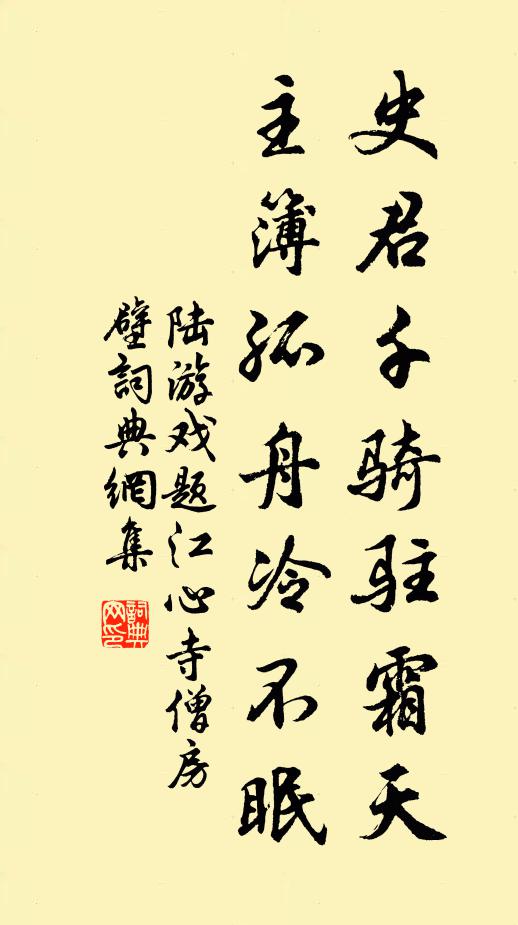 史君千骑驻霜天
主簿孤舟冷不眠
陆游戏题江心寺僧房
壁詞典網集
詞典网印